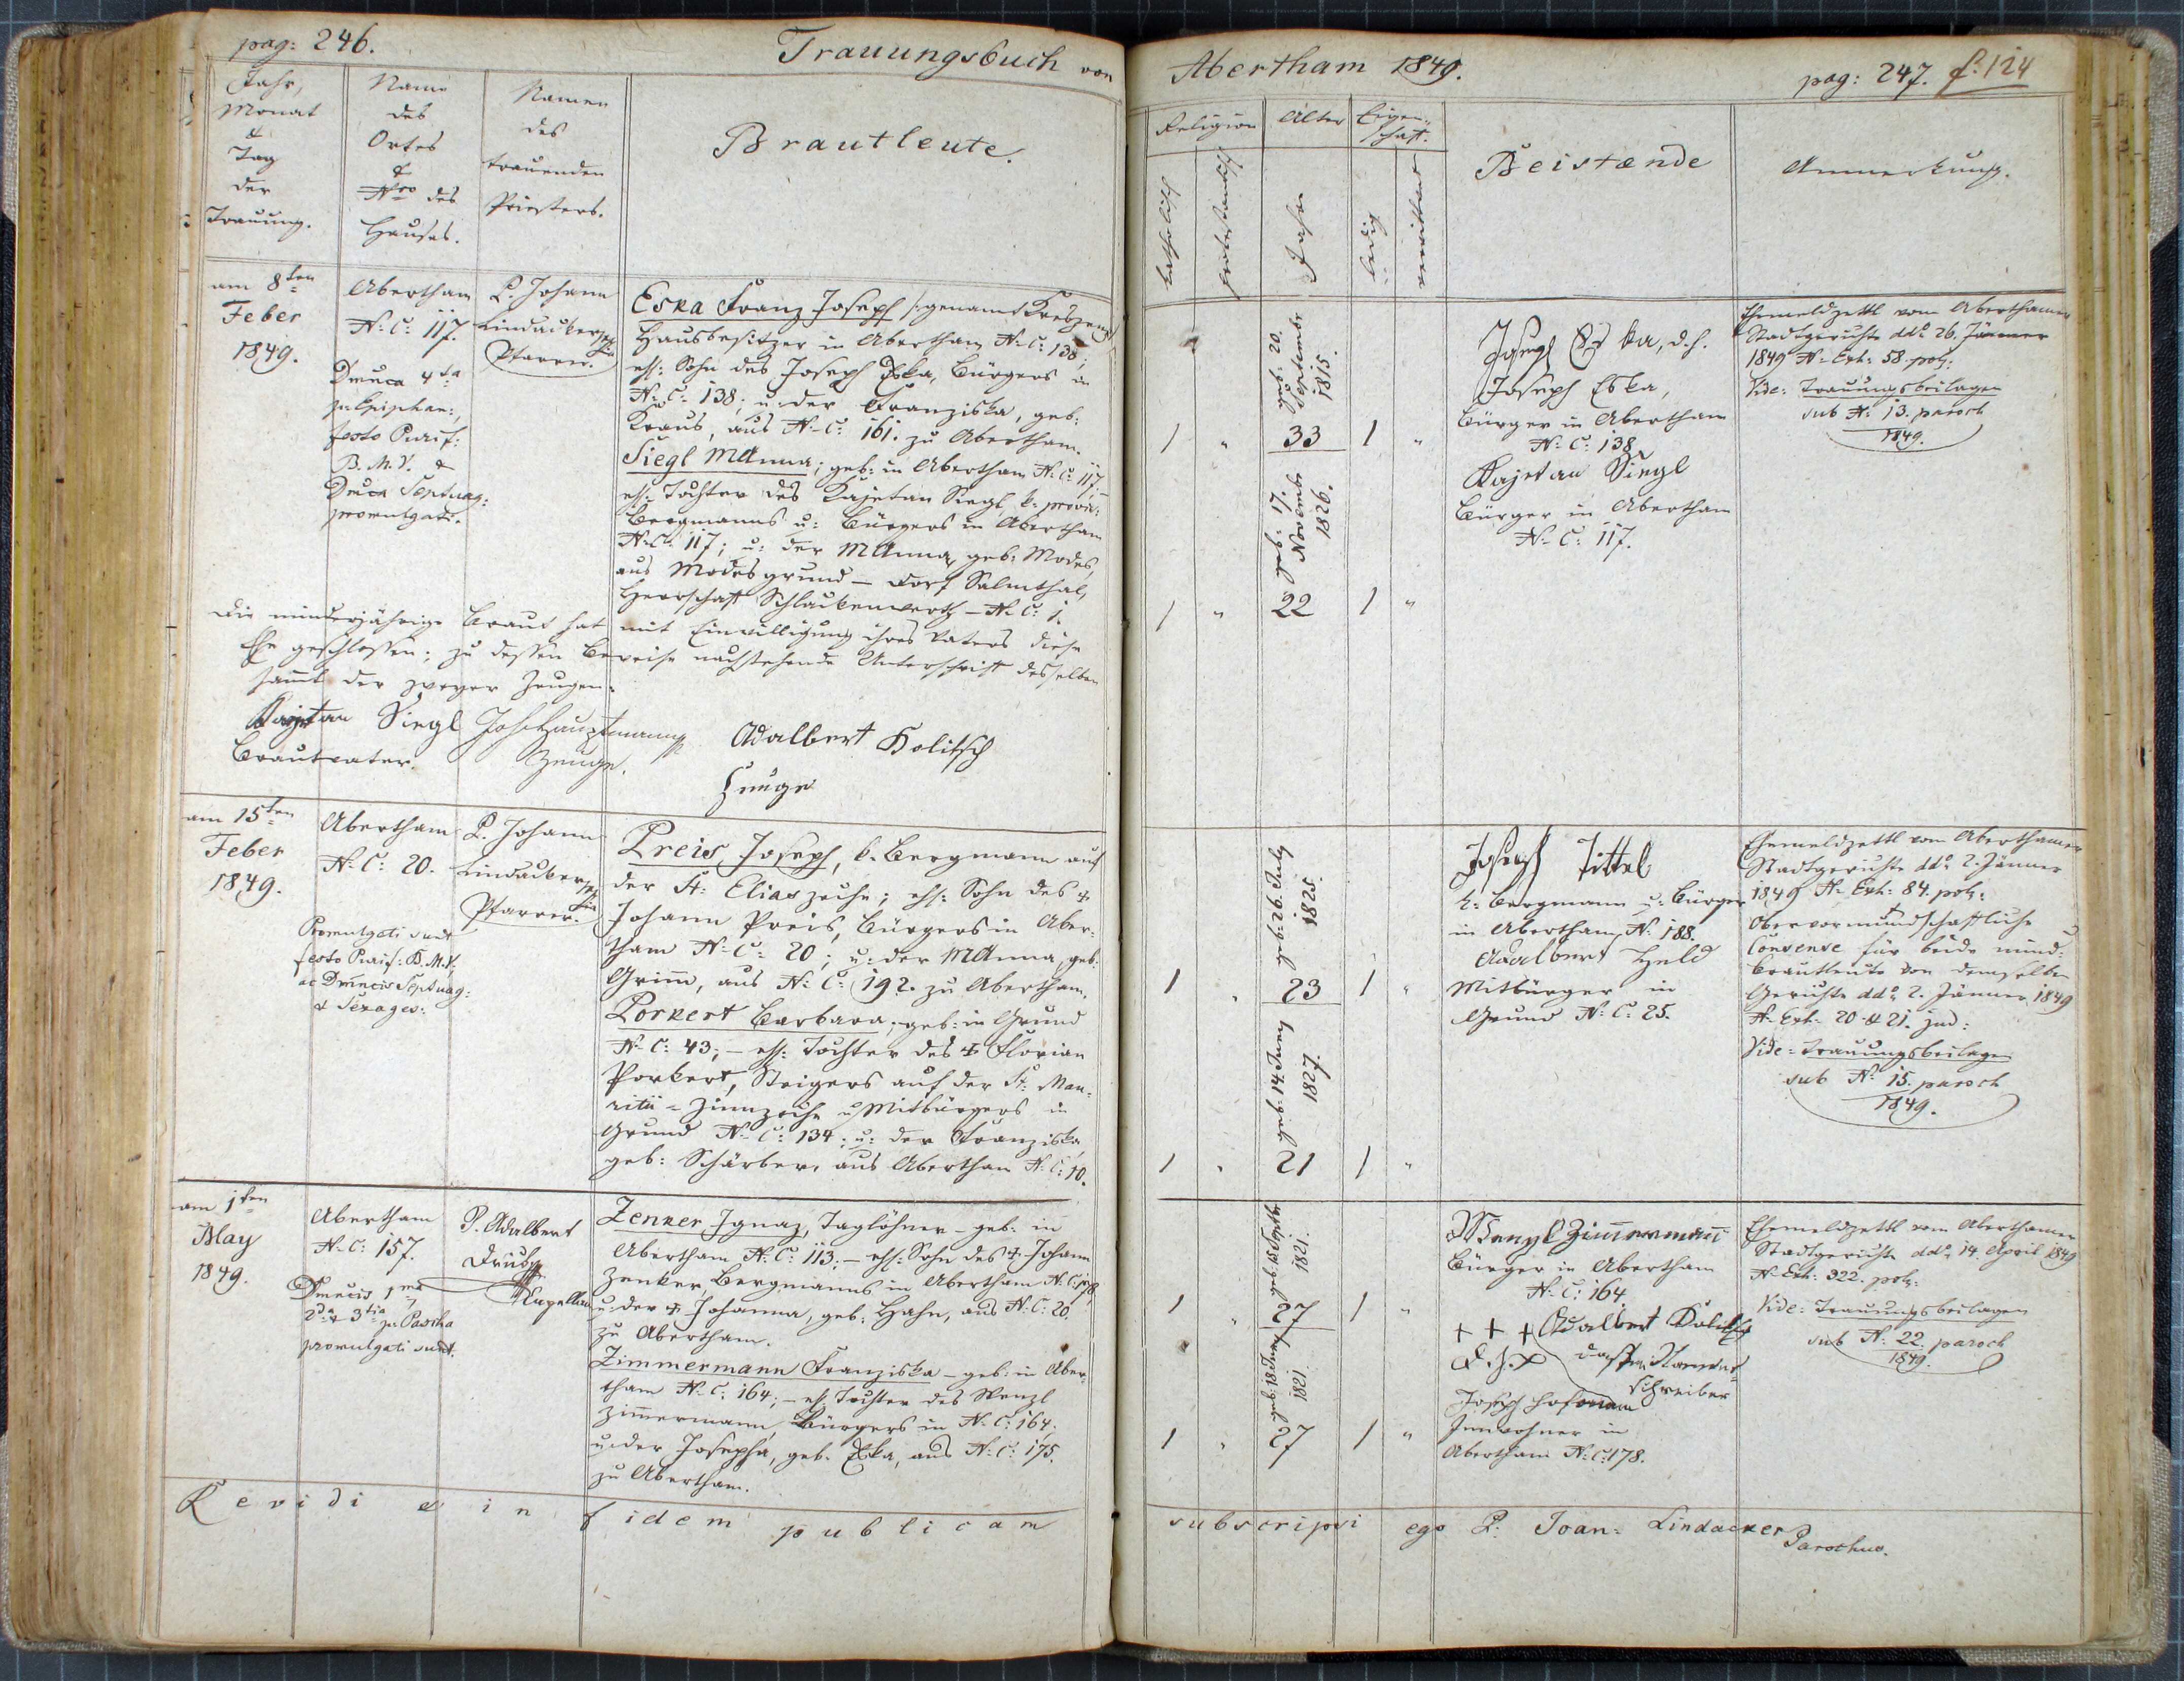 pag: 246.
Trauungsbuch von
Jahr,
Monat
&
Tag
der
Trauung.
Name
des
Ortes
&
Nro des
Hauses.
Namen
des
trauenden
Priesters.
Brautleute.
am 8ten
Feber
1849.
Abertham
N: C: 117.
Dmnca 4ta
p. Epiphan:,
festo Purif:
B. M. V. &
Dmca Septuag:
promulgati.
P. Johann
Lindacker
Pfarrer.
Eska Franz Joseph /: genannt Kreszenz
Hausbesitzer in Abertham N: C: 138;
ehl: Sohn des Joseph Eska, Bürgers in
N: C: 138; u: der Franziska, geb:
Kraus, aus N: C: 161. zu Abertham.
Siegl MAnna; geb: in Abertham N: C: 117; –
ehl: Tochter des Kajetan Siegl, k: prov:
Bergmanns u: Bürgers in Abertham
N: C: 117; u: der MAnna, geb: Modes,
aus Modesgrund – Dorf Salmthal,
Herrschaft Schlackenwerth – N: C: 1.
Die minderjährige Braut hat mit Einwilligung ihres Vaters diese
Ehe geschlossen; zu dessen Beweise nachstehende Unterschrift desselben
sammt der zweyer Zeugen.
Kajetan Siegl Joh Hauptmann
Adalbert Kolitsch
Brautvater. Zeuge.
Zeuge
am 15ten
Feber
1849.
Abertham
N: C: 20.
Promulgati sunt
festo Purif: B. M. V.
ac Dmncis Septuag:
& Sexages:
P. Johann
Lindacker
Pfarrer.
Preis Joseph, k. Bergmann auf
der St: Elias zeche; ehl: Sohn des †
Johann Preis, Bürgers in Aber-
tham N: C: 20; u: der MAnna, geb:
Grimm, aus N: C: 192. zu Abertham.
Porkert Barbara; geb: in Grund
N: C: 43; – ehl: Tochter des † Florian
Porkert, Steigers auf der St: Mau-
ritii = Zinnzeche u Mitbürgers in
Grund N: C: 134; u: der Franziska,
geb: Schärber, aus Abertham N: C: 10.
am 1ten
May
1849.
Abertham
N: C: 157.
Dmncis 1ma
2da & 3tia p: Pascha
promulgati sunt.
P. Adalbert
Kapellan
Zenker Ignaz, Taglöhner – geb: in
Abertham N: C: 113; – ehl: Sohn des † Johann
Zenker, Bergmanns in Abertham N: C: 178,
u: der † Johanna, geb: Hahn, aus N: C: 20.
zu Abertham.
Zimmermann Franziska – geb: in Aber-
tham N: C: 164; – ehl: Tochter des Wenzl
Zimmermann, Bürgers in N: C: 164;
u: der Josepha, geb. Eska, aus N: C: 175.
zu Abertham.
Revidi & in fidem publicam
Abertham 1849.
pag: 247. f: 124
Religion
Alter
Eigen-
schaft.
Beistænde
Anmerkung.
katholisch
protestantisch
Jahre
ledig
verwittwet
geb: 20.
Septembr
1815.
1 " 33 1 "
geb: 17.
Novembr
1826.
1 " 22 1 "
Josegl Es ka, d. h.
Joseph Eska,
Bürger in Abertham
N: C: 138
Kajetan Siegl
Bürger in Abertham
N: C: 117.
Ehemeldzettl vom Aberthamer
Stadtgerichte ddo 26. Jänner
1849 N: Exh: 58. pol:
Vide: Trauungsbeilagen
sub N: 13. paroch
1849.
geb: 26. July
1825.
1 " 23 1 "
geb: 14. Juny
1827.
1 " 21 1 "
Joseph Tittel
k: Bergmann u: Bürger
in Abertham, N: 188.
Adalbert Held
Mitbürger in
Grund N: C: 25.
Ehemeldzettl vom Aberthamer
Stadtgerichte ddo 2. Jänner
1849 N: Exh: 84. pol:
Obervormundschaftliche
Consense für beide mind:
Brautleute von demselben
Gerichte ddo 2. Jänner 1849
N: Exh: 20 & 21. jud:
Vide: Trauungsbeilagen
sub No 15. paroch
1849.
geb: 15. Septbr
1821.
1 " 27 1 "
geb: 18. Juny
1821.
1 " 27 1 "
Wenzl Zimmermann
Bürger in Abertham
N: C: 164.
+ + + Adalbert Kolitsch
d. h. dessen Namens-
schreiber
Joseph Hofmann
Innwohner in
Abertham N: C: 178.
Ehemeldzettl vom Aberthamer
Stadtgerichte ddo 14. April 1849
N: Exh: 322. pol:
Vide: Trauungsbeilagen
sub N: 22. paroch
1849.
subscripsi ego P: Joan: Lindacker
Parochus.